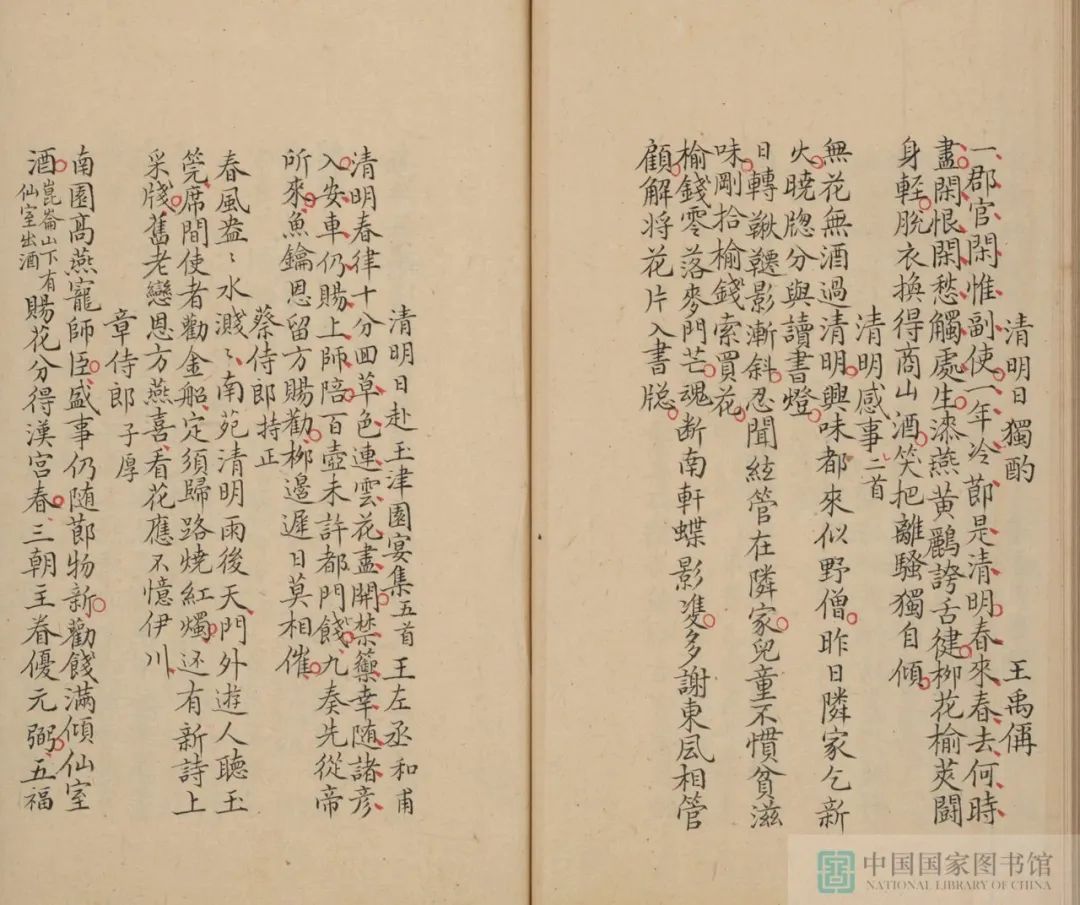 清明日獨酌 王禹偁
一郡官閑惟副使一年冷節是清明春來春去何時
盡閑恨閑愁觸處生漆燕黃鸝誇舌徤柳花榆莢鬪
身輕脫衣換得商山酒笑把離騷獨自傾
清明感事二首
無花無酒過清明興味都來似野僧昨日隣家乞新
火曉牕分與讀書燈
日轉鞦韆影漸斜忍聞絃管在隣家兒童不慣貧滋
味剛拾榆錢索買花
榆錢零落麥門芒魂断南軒蝶影隻多謝東風相管
顧解將花片入書牕
清明日赴玉津園宴集五首 王左丞和甫
清明春律十分回草色連雲花盡開禁籞幸随諸彥
入安車仍賜上師陪百壺未許都門餞九奏先從帝
所來魚鑰恩留方賜勸柳邊遲日莫相催
蔡侍郎持正
春風盎〻水濺〻南苑清明雨後天門外遊人聽玉
筦席間使者勸金船定須歸路燒紅燭还有新詩上
采牋舊老戀恩方燕喜看花應不憶伊川
章侍郎子厚
南園高燕寵師臣盛事仍随節物新勸餞滿傾仙室
酒崑崙山下有仙室出酒賜花分得漢宮春三朝王眷優元弼五福
中国国家图书馆
NATIONAL LIBRARY OF CHINA